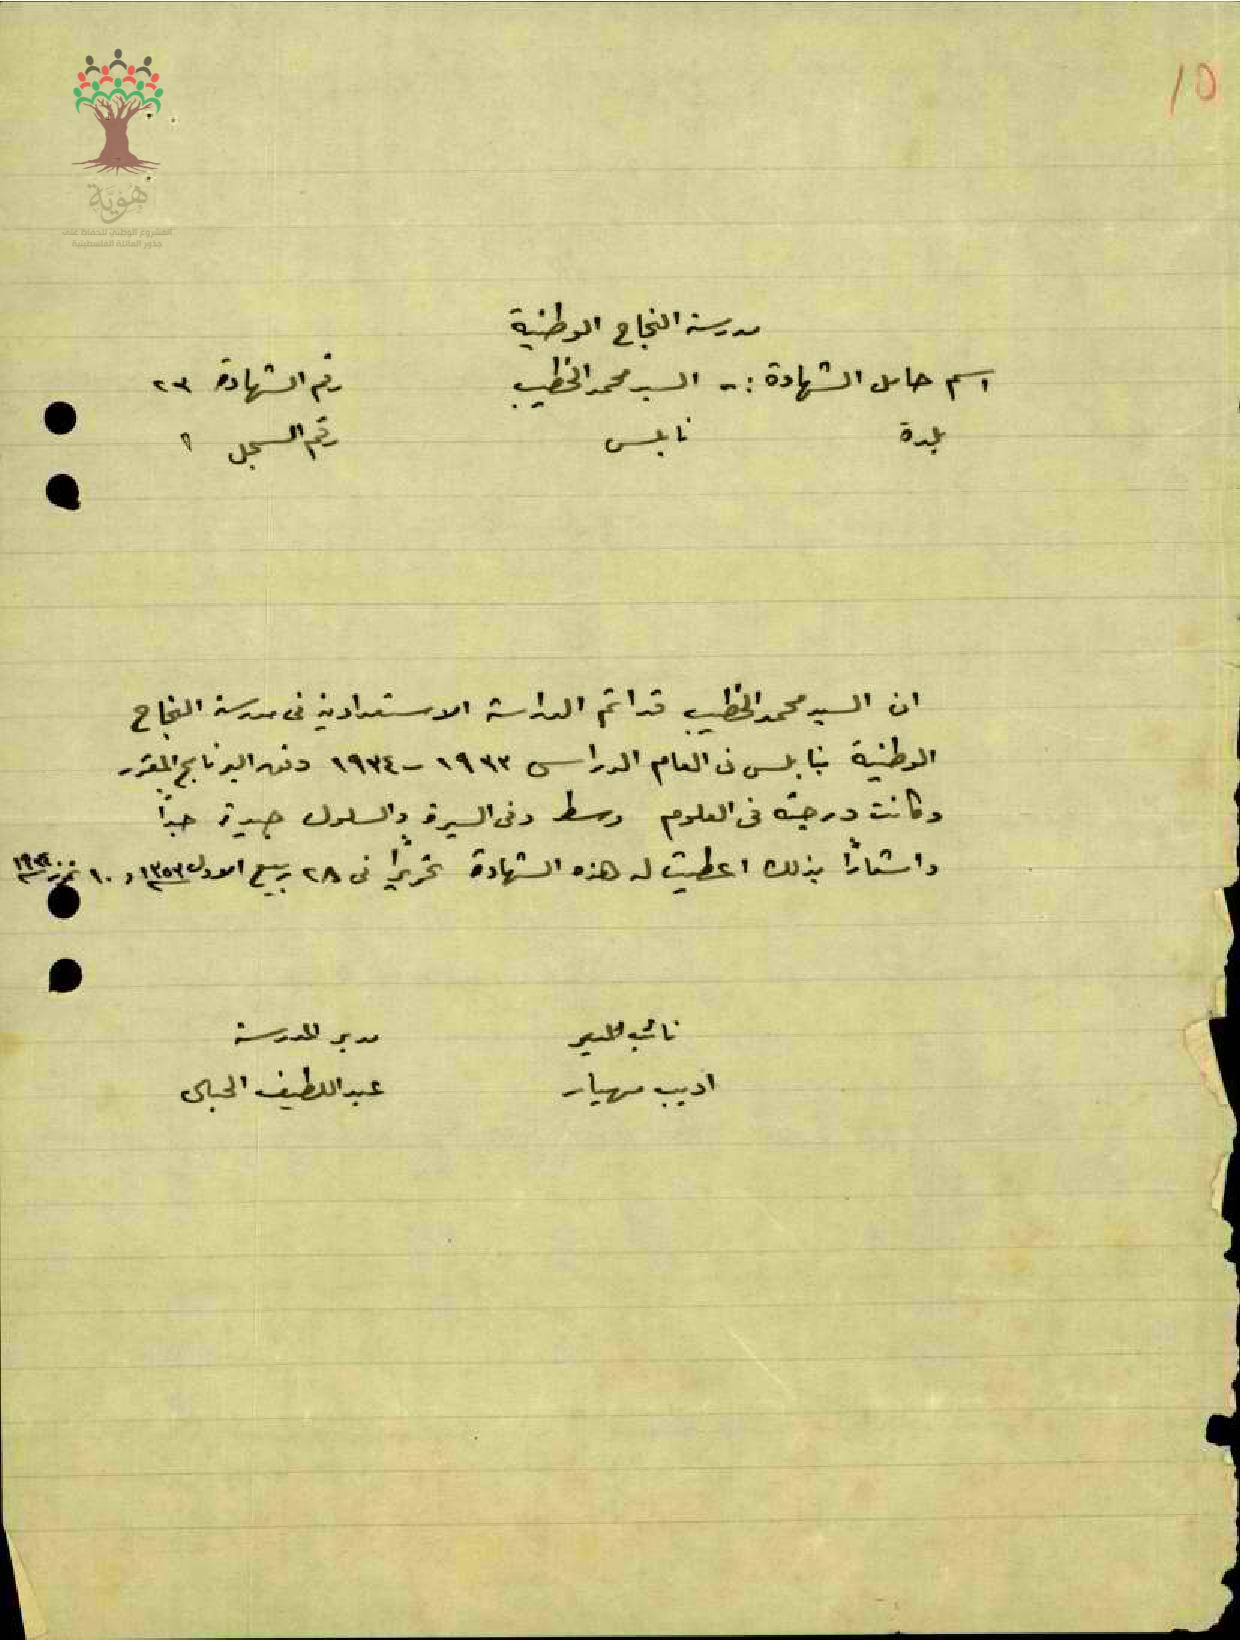 10
هُوِيَّة
المشروع الوطني للحفاظ على
جذور العائلة الفلسطينية
مدرسة النجاح الوطنية
اسم حامل الشهادة :- السيد محمد الخطيب رقم الشهادة ٢٣
بلدة نابلس رقم السجل
ان السيد محمد الخطيب قد اتم الدراسة الاستعدادية في مدرسة النجاح
الوطنية بنابلس في العام الدراسي ١٩٣٣ - ١٩٣٤ وفق البرنامج المقرر
وكانت درجته في العلوم وسط وفي السيرة والسلوك جيدة جداً
واشعاراً بذلك اعطيت له هذه الشهادة تحريراً في ٢٨ ربيع الاول ١٣٥٣ و ١٠ تموز ١٩٣٤
نائب المدير مدير المدرسة
اديب مهيار عبد اللطيف الحبال